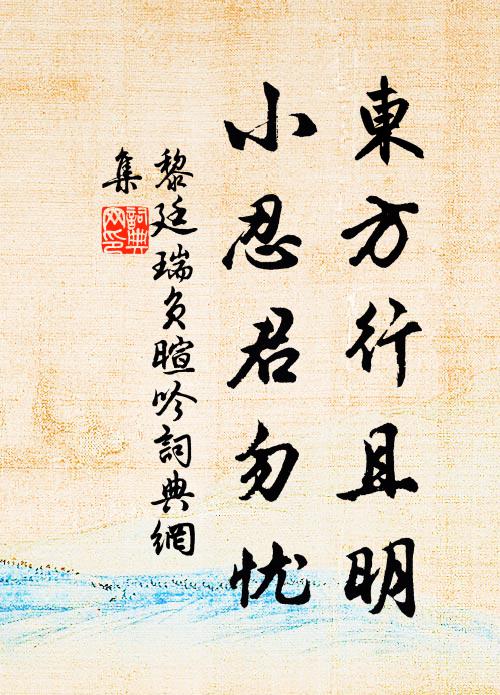 東方行且明
小忍君勿忧
黎廷瑞负暄吟詞典網
集
詞典
网印